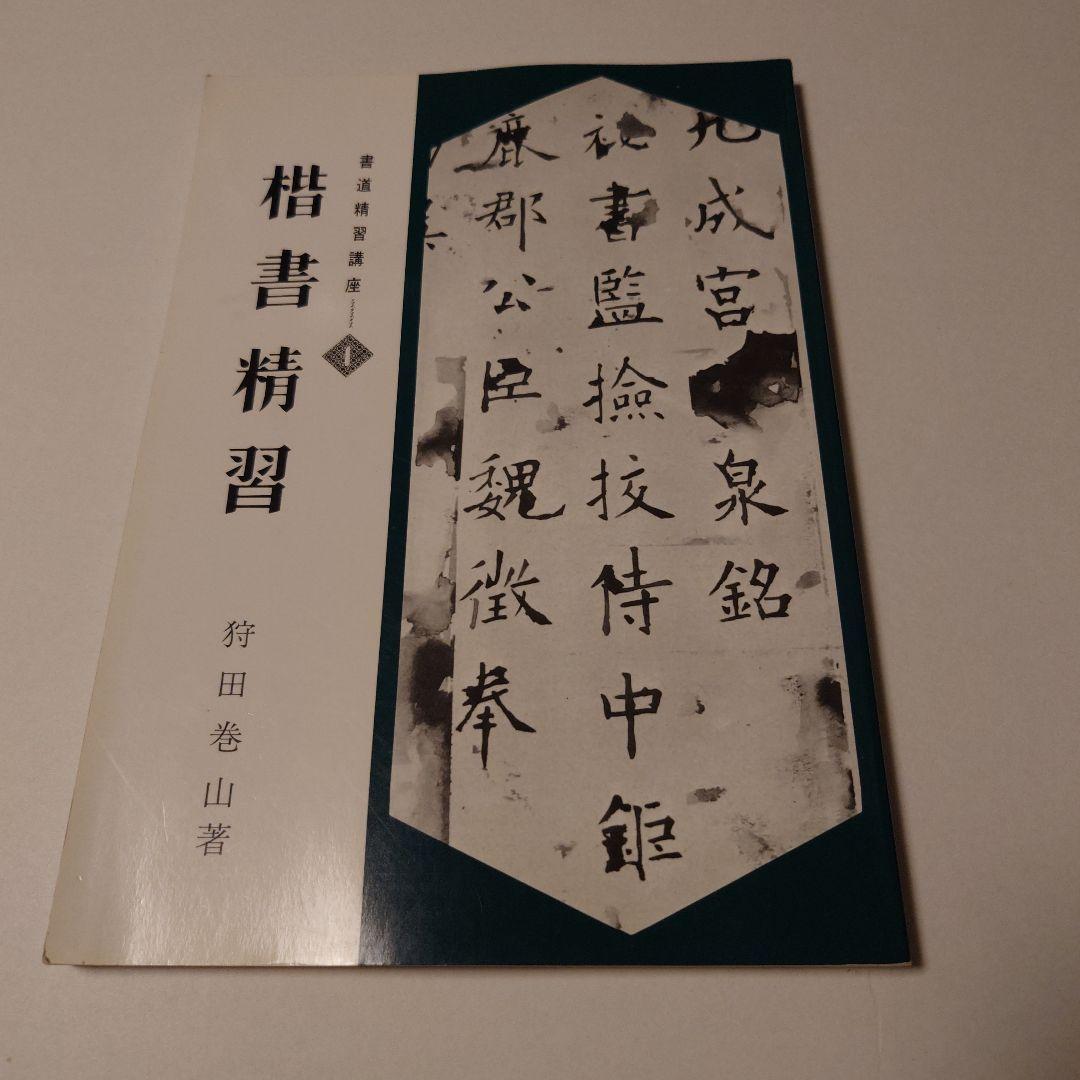 九成宮泉銘
秘書監撿挍侍中鉅
鹿郡公臣魏徴奉
書道精習講座 1
楷書精習
狩田巻山著